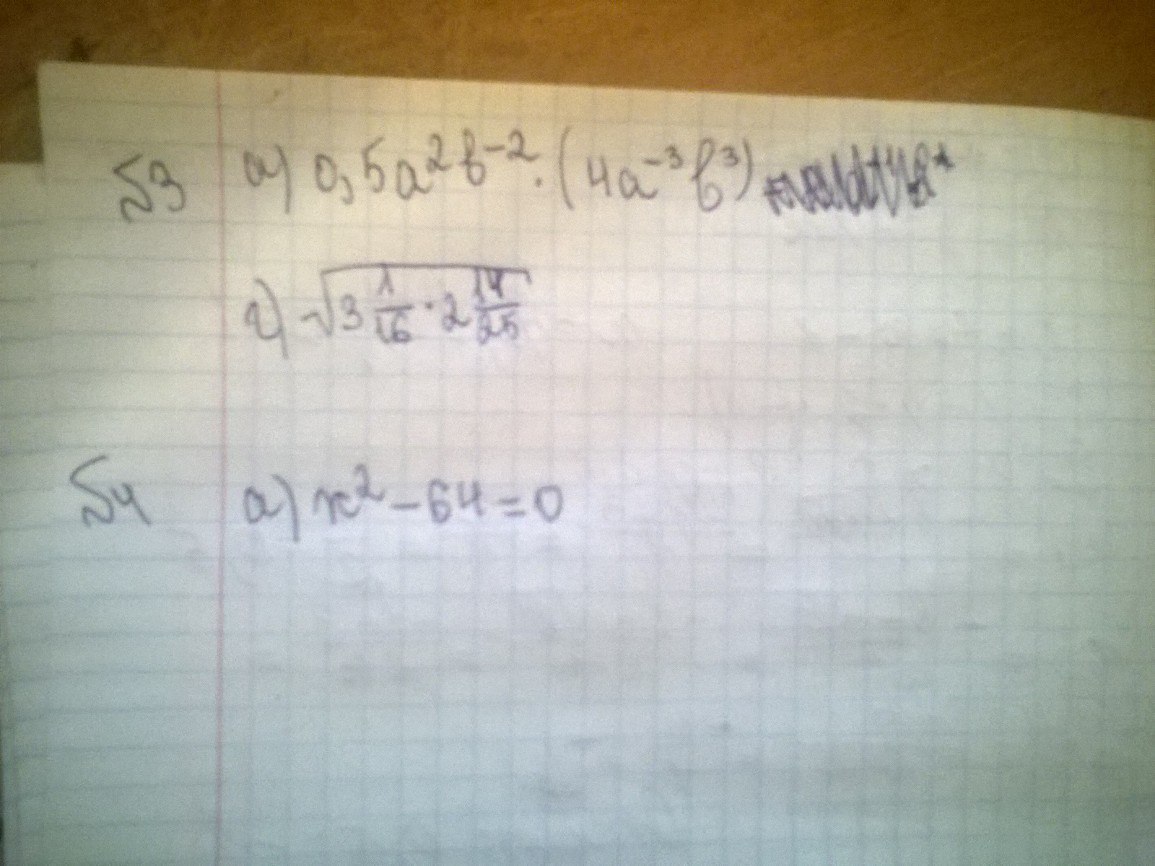 №3 а) 0,5a²b⁻² · (4a⁻³b³)
г) √(3 1/16 · 2 14/25)
№4 а) x² − 64 = 0